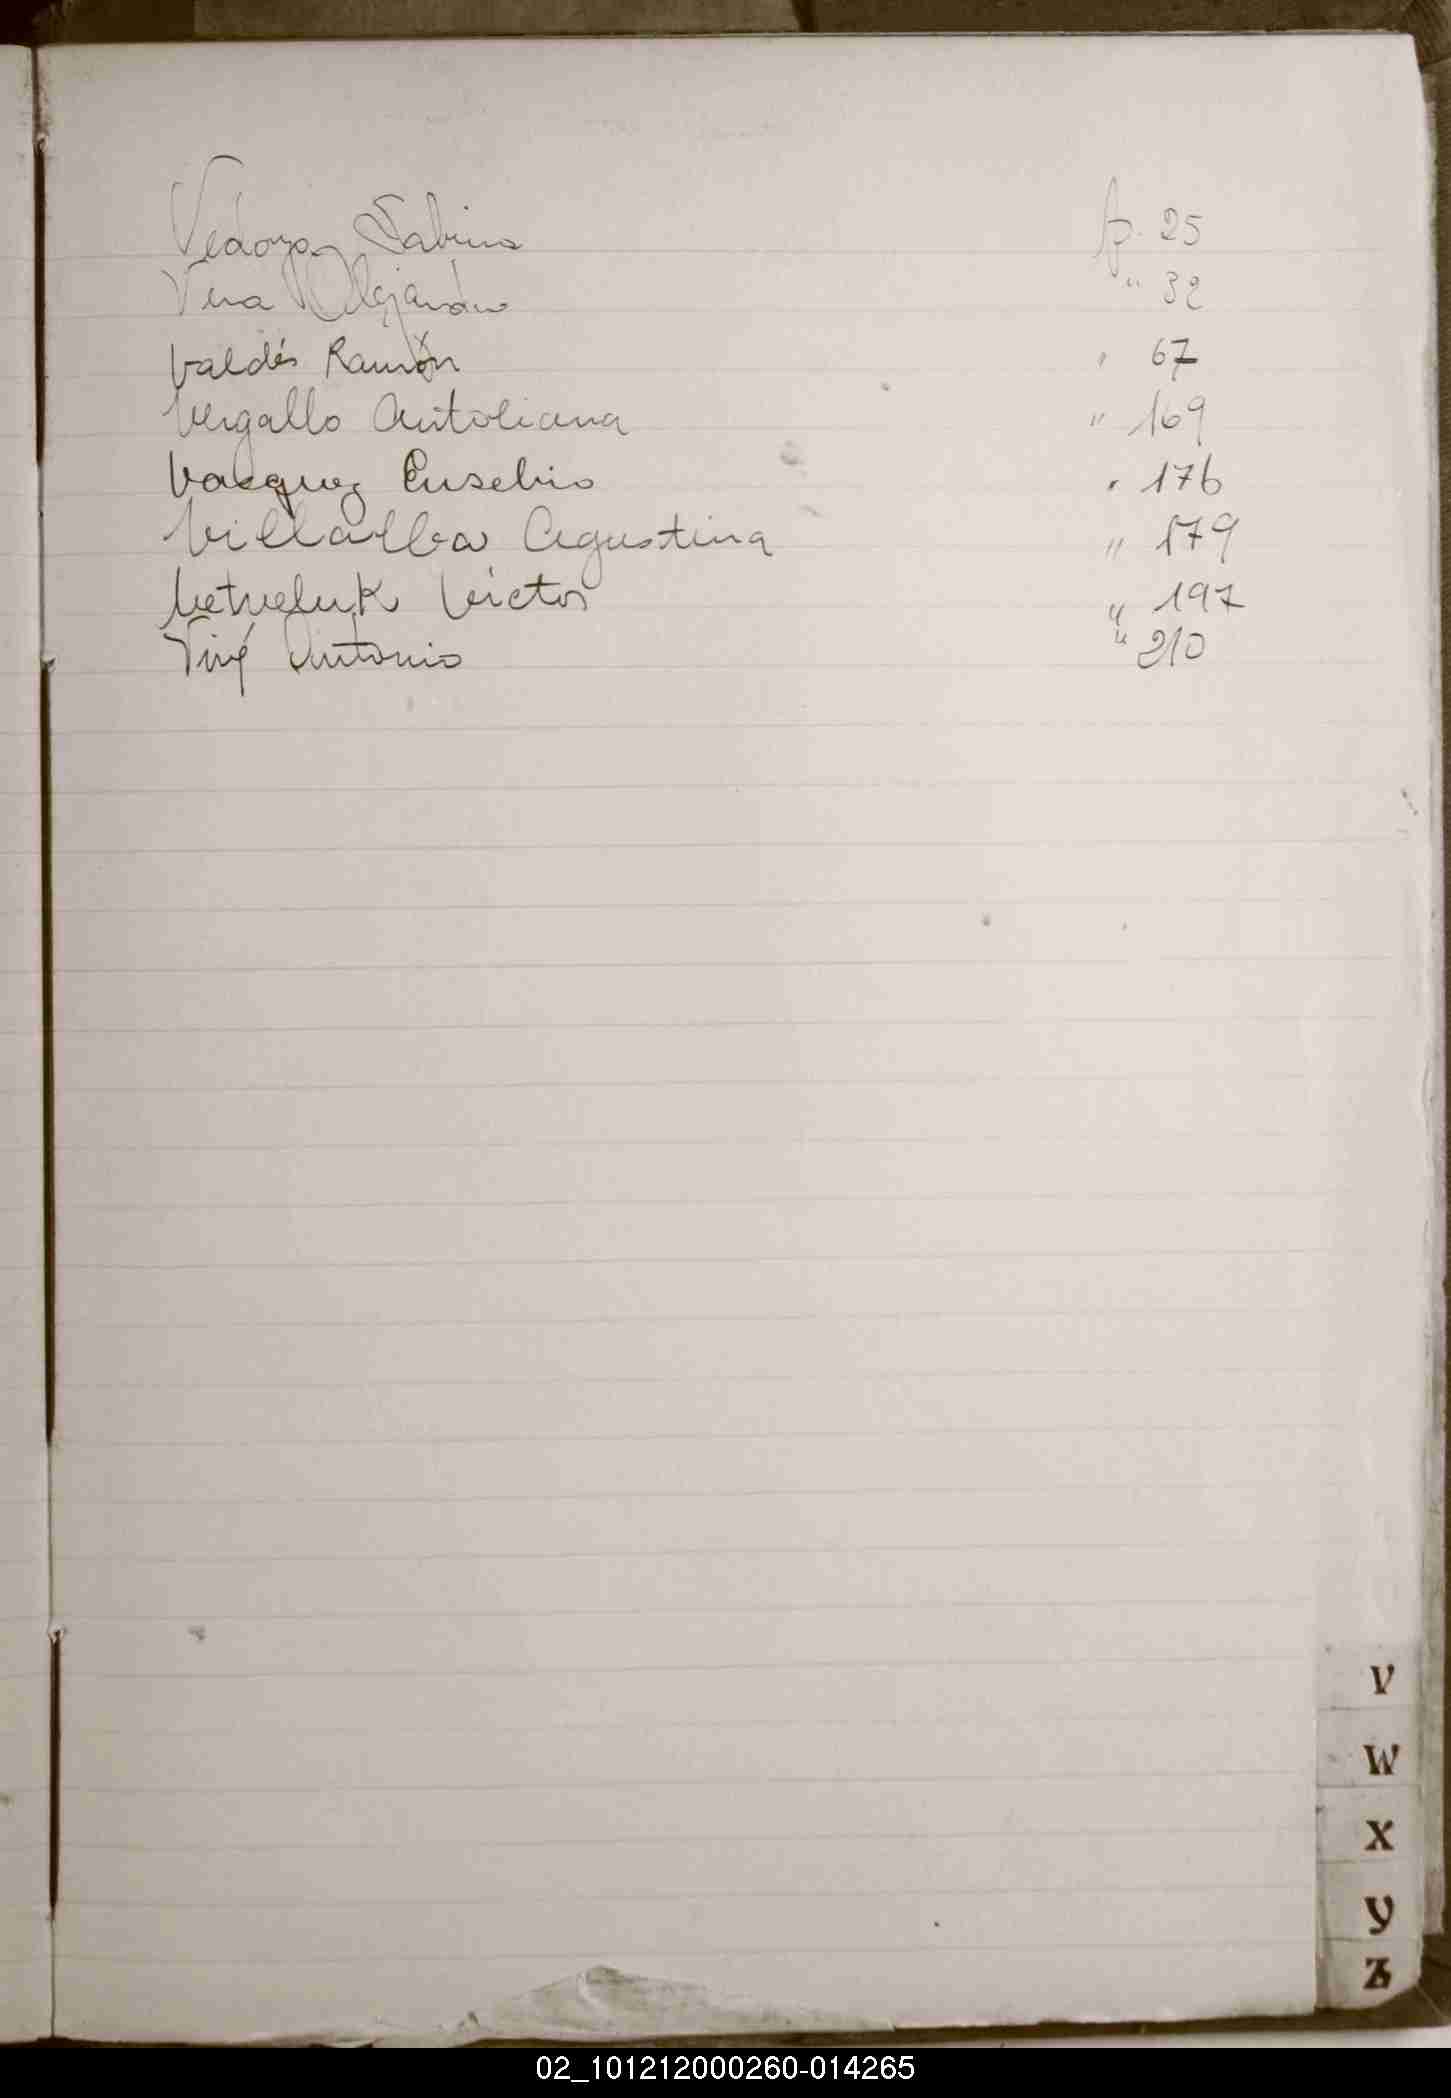 Vedoya Sabina p. 25
Vera Alejandro " 32
Valdés Ramón " 67
Vergallo Antoliana " 169
Vazquez Eusebio " 176
Villalba Agustina " 179
Victor " 197
Antonio " 210
V
W
X
Y
Z
02_101212000260-014265